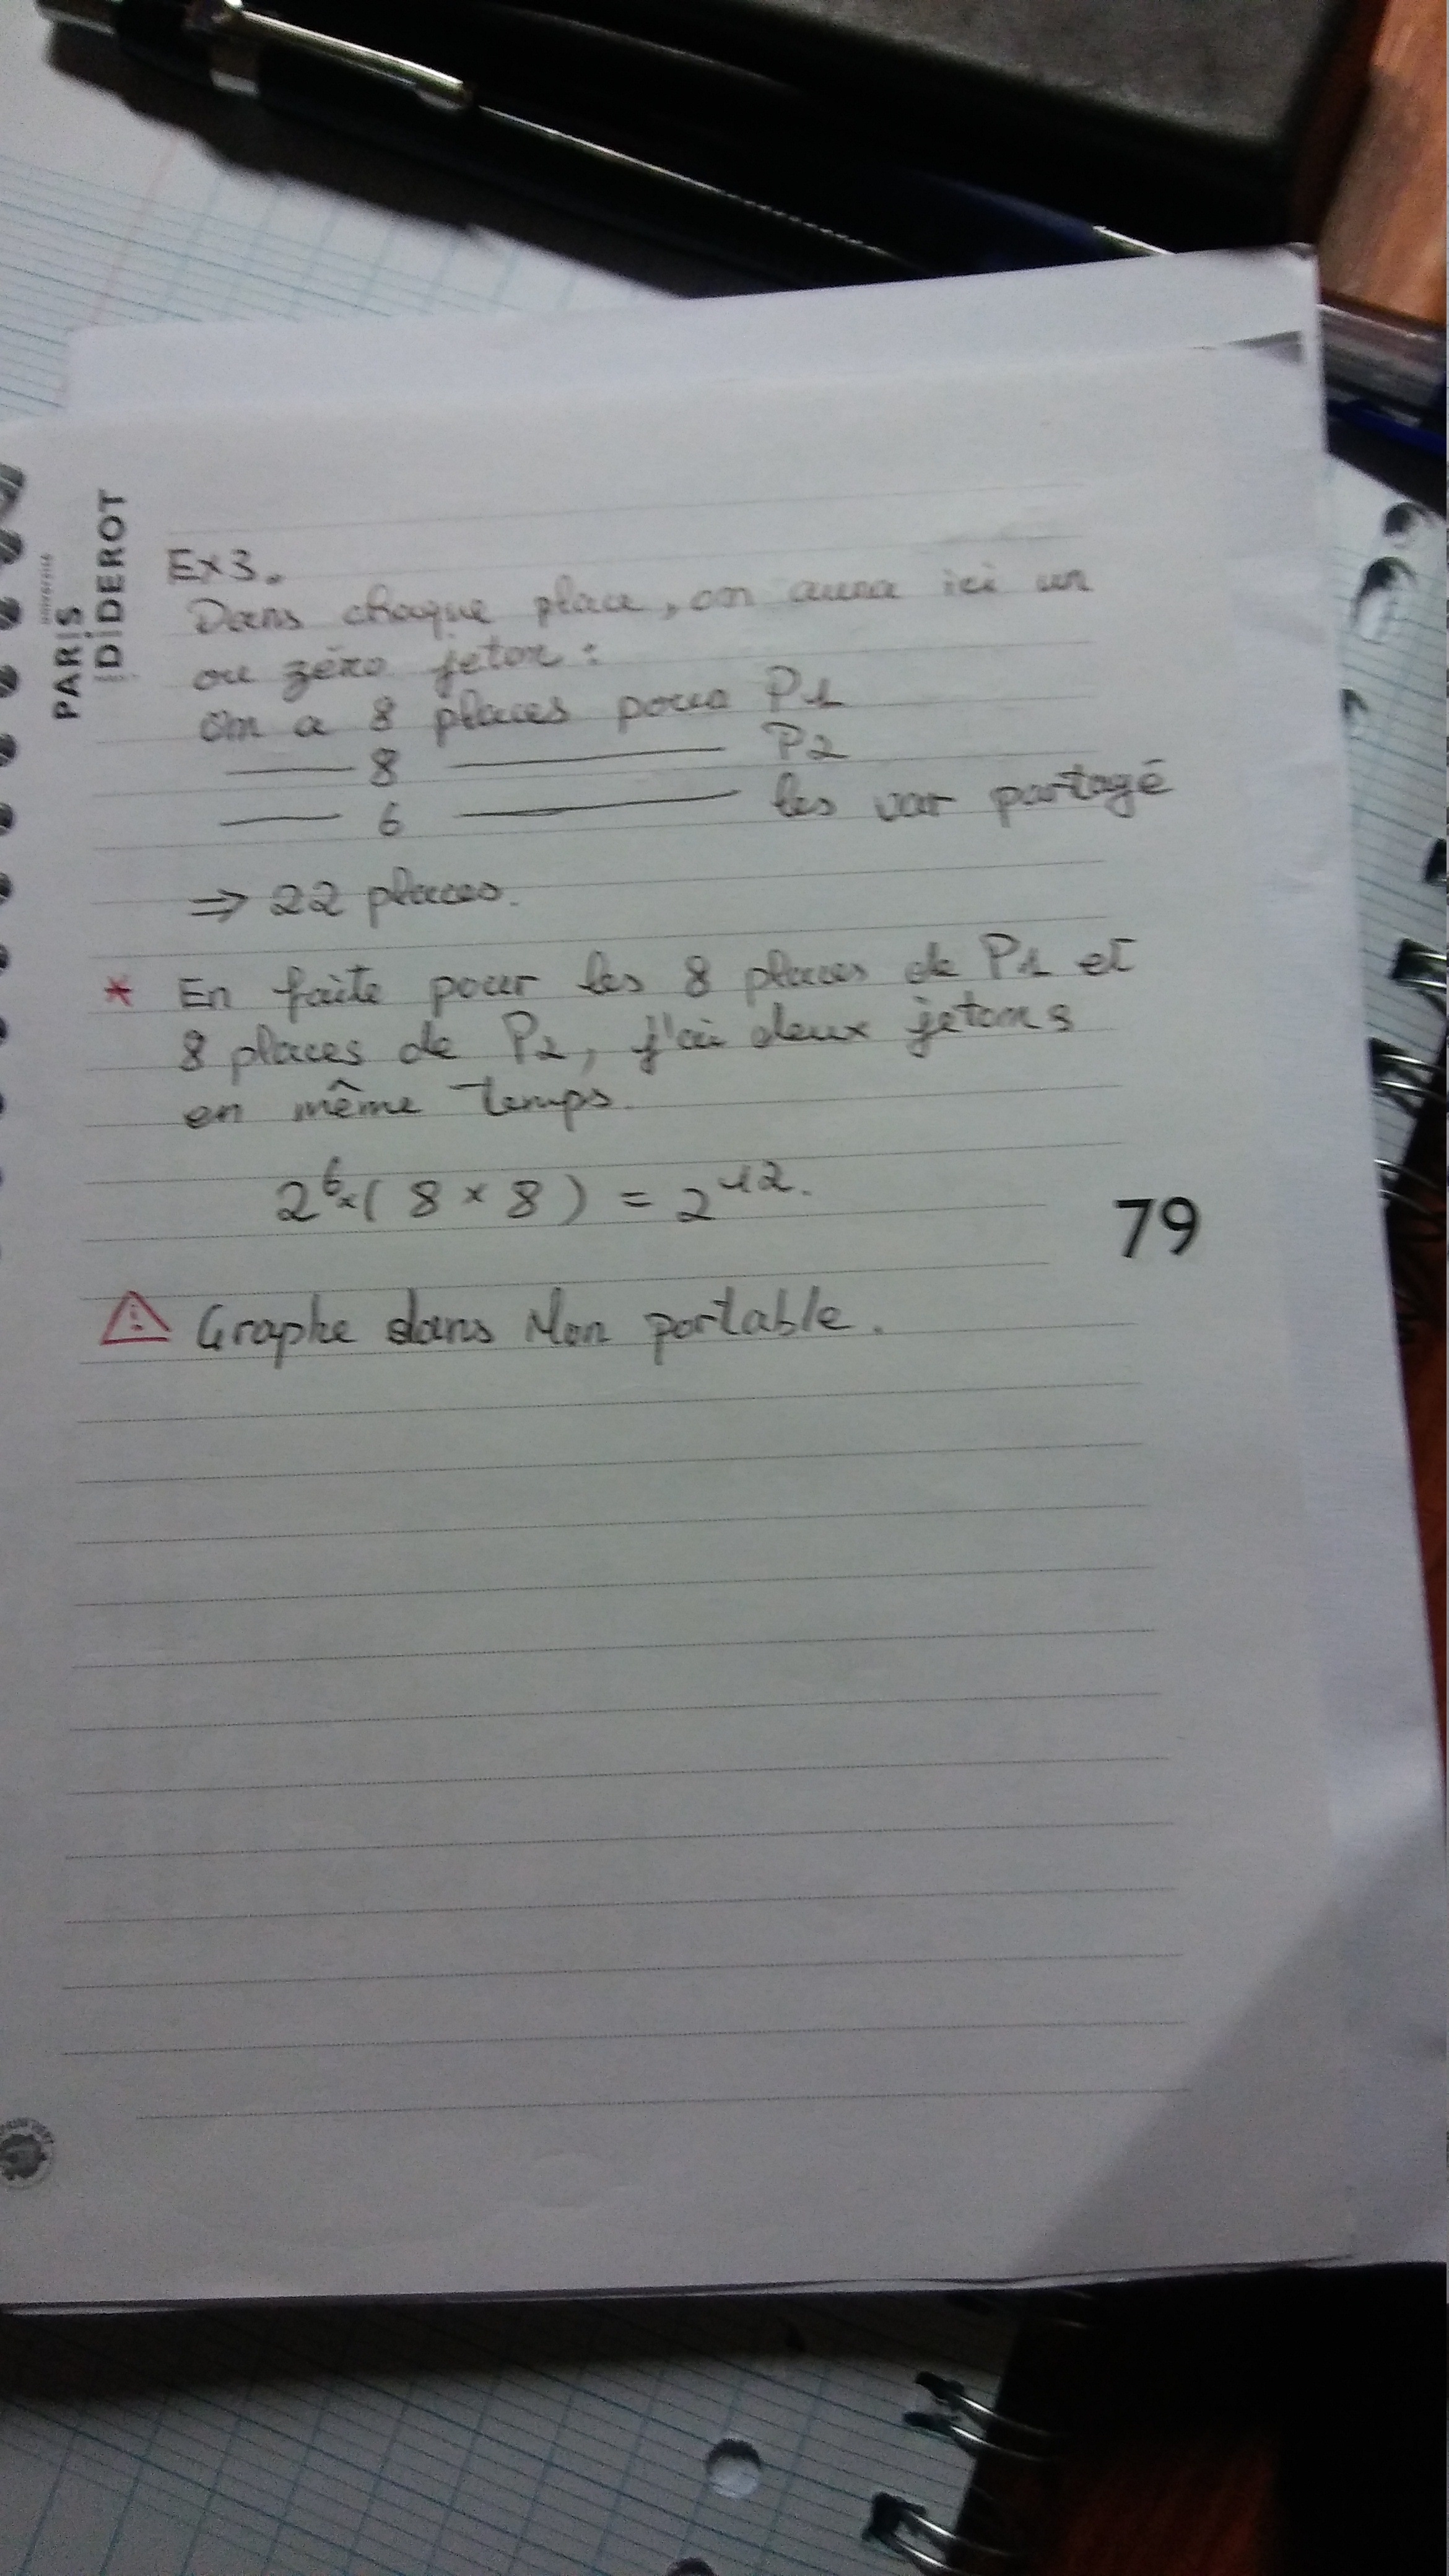 UNIVERSITÉ
PARIS
DIDEROT
Ex3.
Dans chaque place, on aura ici un
ou zéro jeton :
on a 8 places pour P1
—— 8 ———— P2
—— 6 ———— les var partagé
⇒ 22 places.
* En faite pour les 8 places de P1 et
8 places de P2, j'ai deux jetons
en même temps.
2^6 × ( 8 × 8 ) = 2^12.
79
⚠ Graphe dans Mon portable.